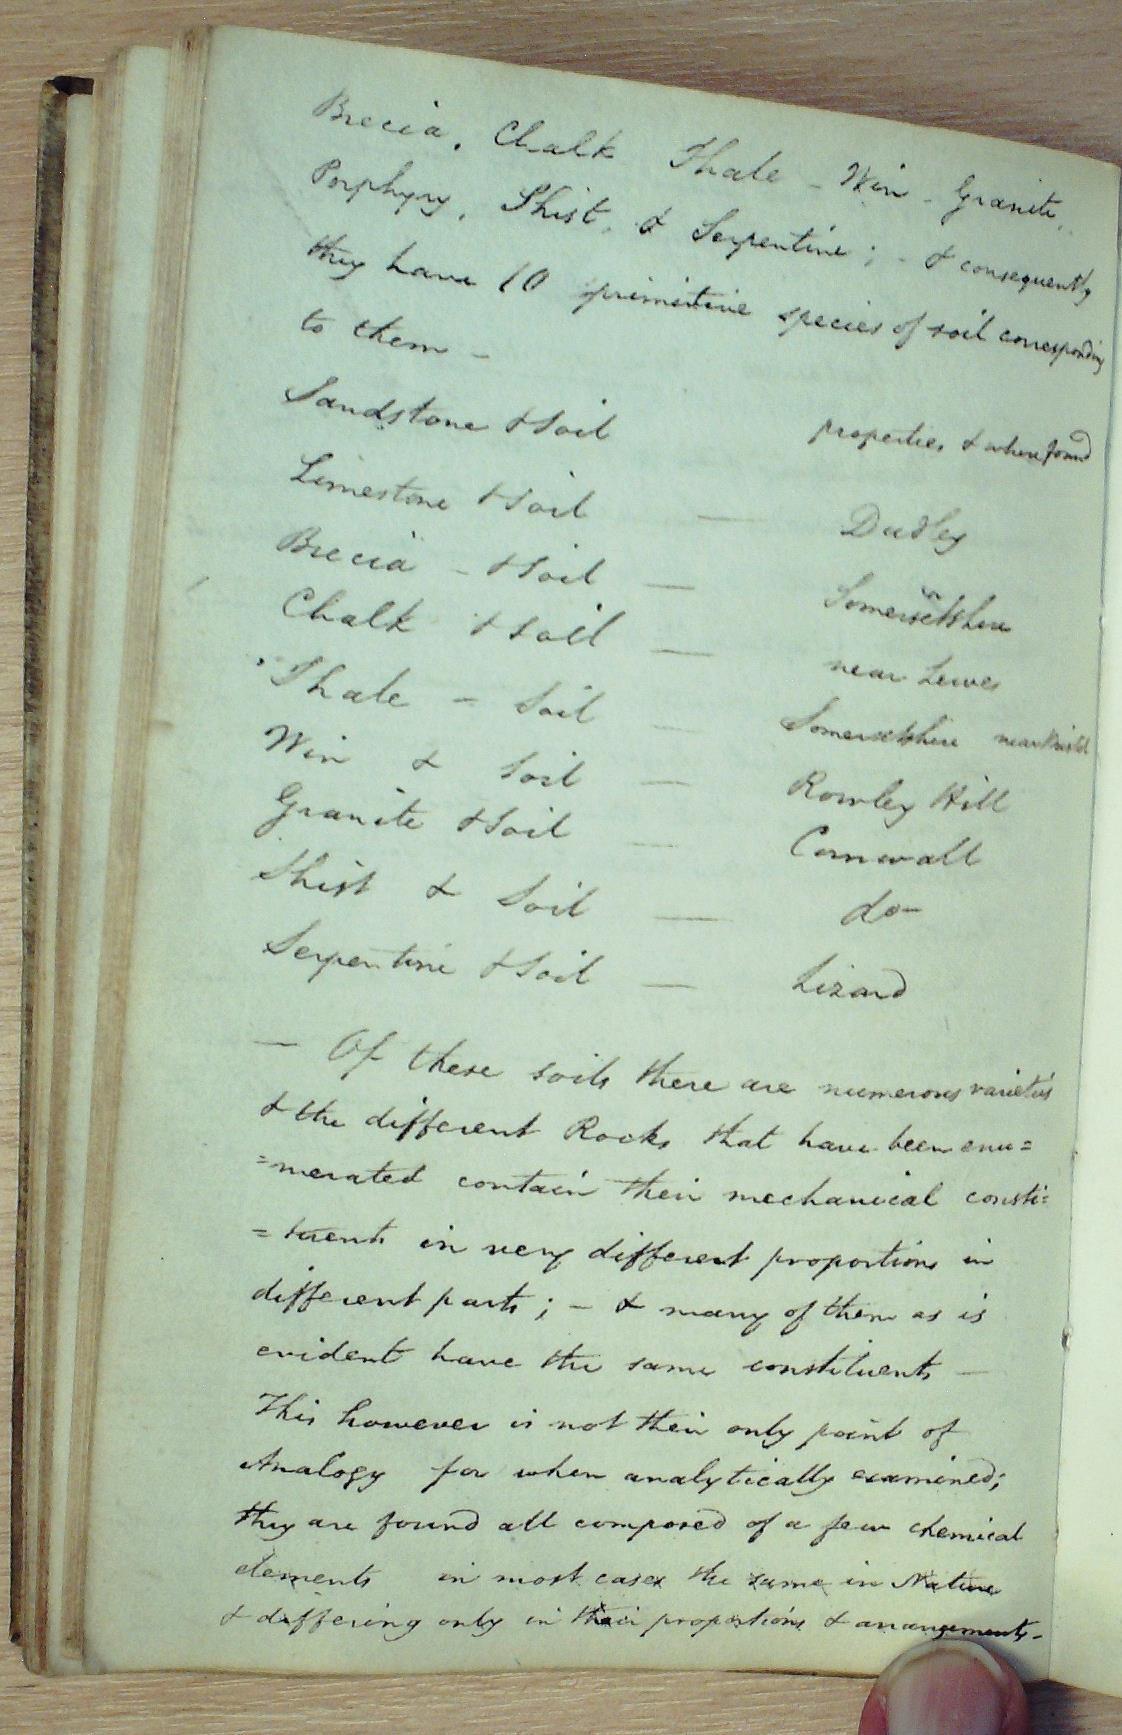 Brecia, Chalk Shale - Win - Granite,
Porphyry, Shist, & Serpentine; - & consequently
they have 10 primitive species of soil corresponding
to them -
Sandstone & Soil properties & where found
Limestone & Soil — Dudley
Brecia - & Soil — Somersetshire
Chalk & Soil — near Lewes
Shale - Soil — Somersetshire near Bristol
Win & Soil — Rowley Hill
Granite & Soil — Cornwall
Shist & Soil — do-
Serpentine & Soil — Lizard
— Of these soils there are numerous varieties
& the different Rocks that have been enu=
=merated contain their mechanical consti=
=tuents in very different proportions in
different parts; - & many of them as is
evident have the same constituents —
This however is not their only point of
Analogy for when analytically examined;
they are found all composed of a few chemical
elements in most cases the same in Nature
& differing only in their proportions & arrangements -